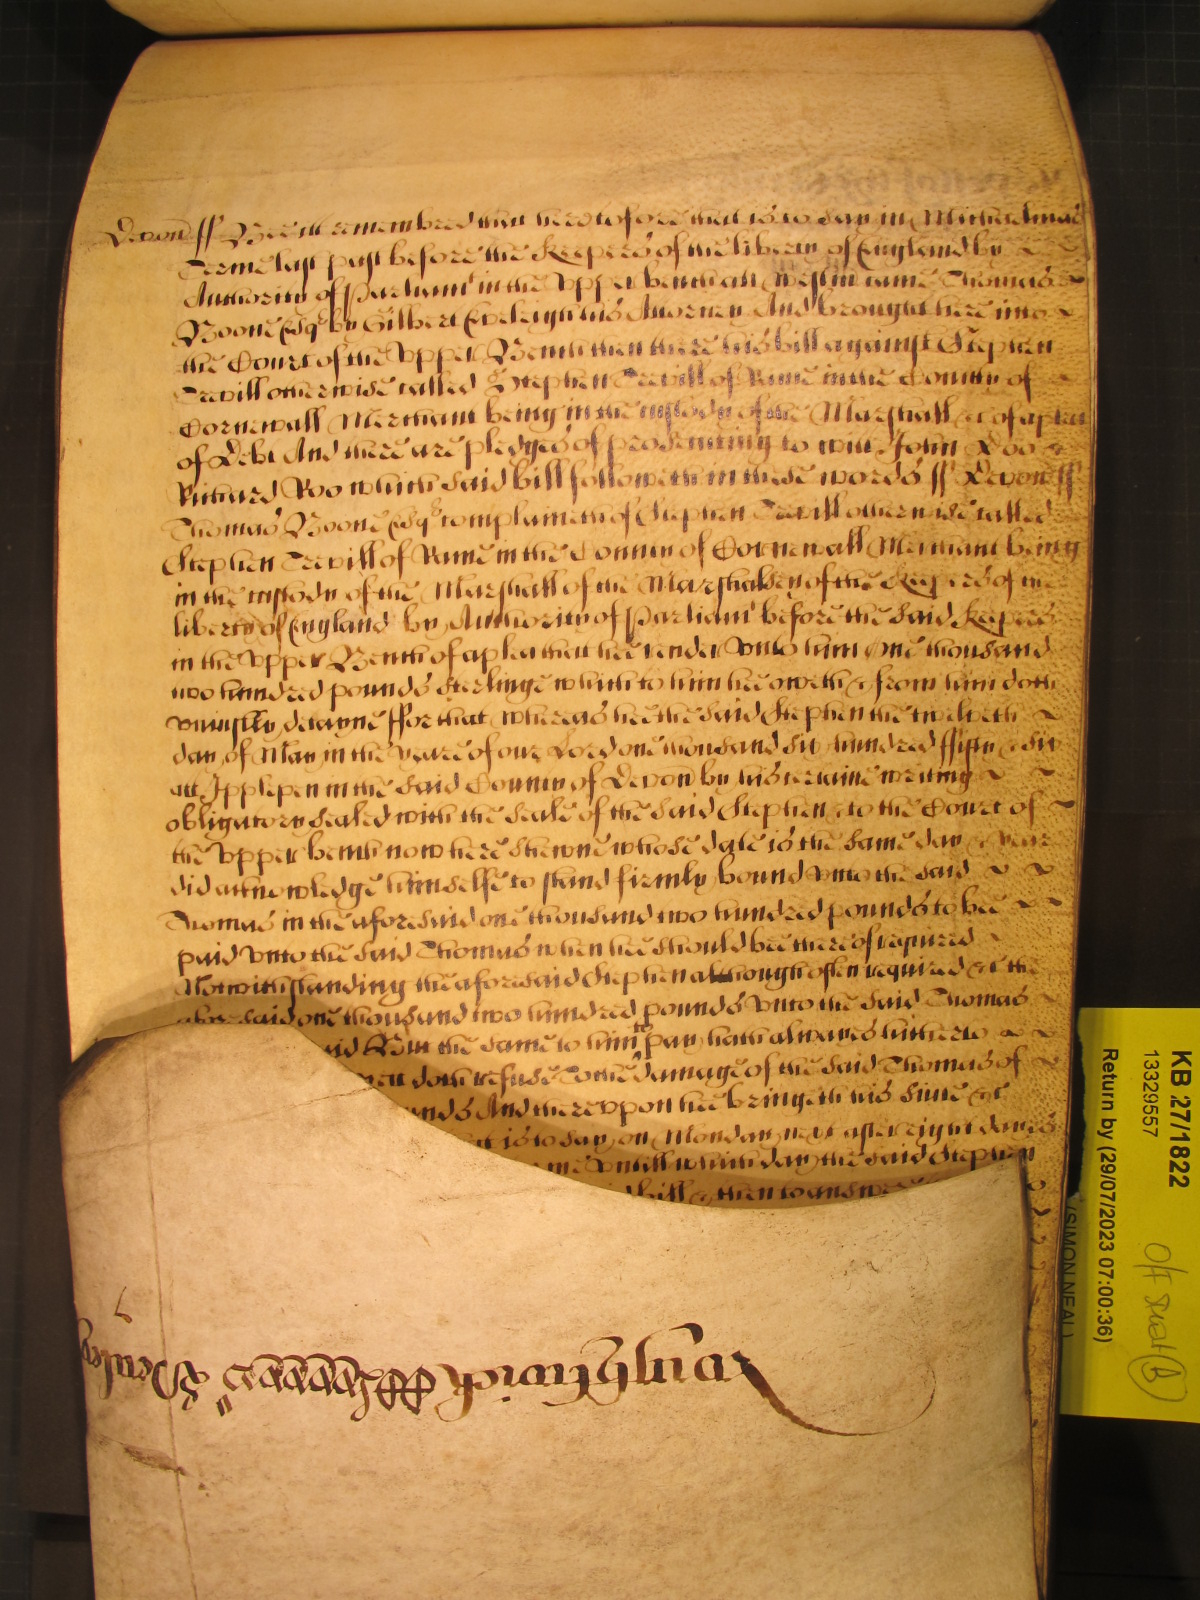 Devon ss Bee itt remembred that heretofore that is to say in Michaelmas
Terme last past before the Keepers of the liberty of England by
Authority of Parliamt in the Upper bench att Westm came Thomas
Boone Esqr by Gilbert Eveleigh his Attorney And brought here into
the Court of the Upper Bench then there his bill against Stephen
Trevill otherwise called Stephen Trevill of Rame in the County of
Cornewall Merchant being in the custody of the Marshall &c of a plea
of Debt And there are pledges of prosecuting to witt John Doo &
Richard Roo which said bill followeth in these words ss Devon ss
Thomas Boone Esqr complaineth of Stephen Trevill otherwise called
Stephen Trevill of Rame in the County of Cornewall Merchant being
in the custody of the Marshall of the Marshalsey of the Keepers of the
liberty of England by Authority of Parliamt before the said Keepers
in the Upper Bench of a plea that hee render unto him One thousand
two hundred pounds sterlinge which to him hee oweth & from him doth
uniustly detayne ffor that whereas hee the said Stephen the twelveth
day of May in the yeare of our Lord one thousand six hundred ffifty & six
att Ipplepen in the said County of Devon by his certaine writing
obligatory sealed with the seale of the said Stephen & to the Court of
the Upper bench now here shewne whose date is the same day & yeare
did acknowledge himselfe to stand firmly bound unto the said
Thomas in the aforesaid one thousand two hundred pounds to bee
paid unto the said Thomas when hee should bee thereof required
Notwithstanding the aforesaid Stephen although often required &c the
aforesaid one thousand two hundred pounds unto the said Thomas
But the same to him to pay hath alwayes hitherto
doth refuse To the damage of the said Thomas of
And thereupon hee bringeth his suite &c
is to say on Monday next after eight dayes
untill which day the said Stephen
bill & then to answere
KB 27/1822
13329557
Return by (29/07/2023 07:00:36)
(SIMON NEAL)